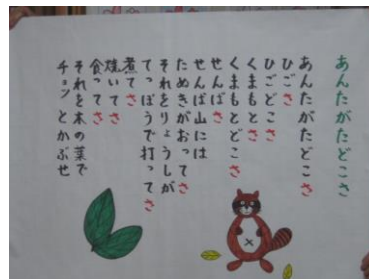 あんたがたどこさ
あんたがたどこさ
ひごさ
ひごどこさ
くまもとさ
くまもとどこさ
せんばさ
せんば山には
たぬきがおってさ
それをりょうしが
てっぽうで打ってさ
煮てさ
焼いてさ
食ってさ
それを木の葉で
チョッとかぶせ